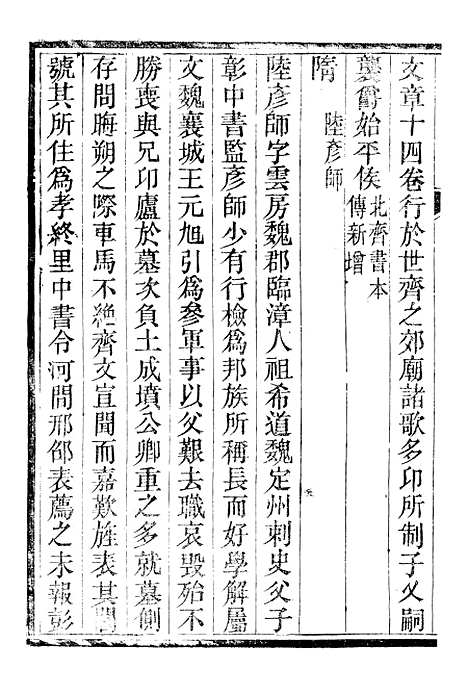 文章十四卷行於世齊之郊廟諸歌多卬所制子乂嗣
襲爵始平侯北齊書本
傳新增
隋 陸彥師
陸彥師字雲房魏郡臨漳人祖希道魏定州刺史父子
彰中書監彥師少有行檢爲邦族所稱長而好學解屬
文魏襄城王元旭引爲參軍事以父艱去職哀毀殆不
勝喪與兄卬廬於墓次負土成墳公卿重之多就墓側
存問晦朔之際車馬不絕齊文宣聞而嘉歎旌表其閭
號其所住爲孝終里中書令河間邢邵表薦之未報彭